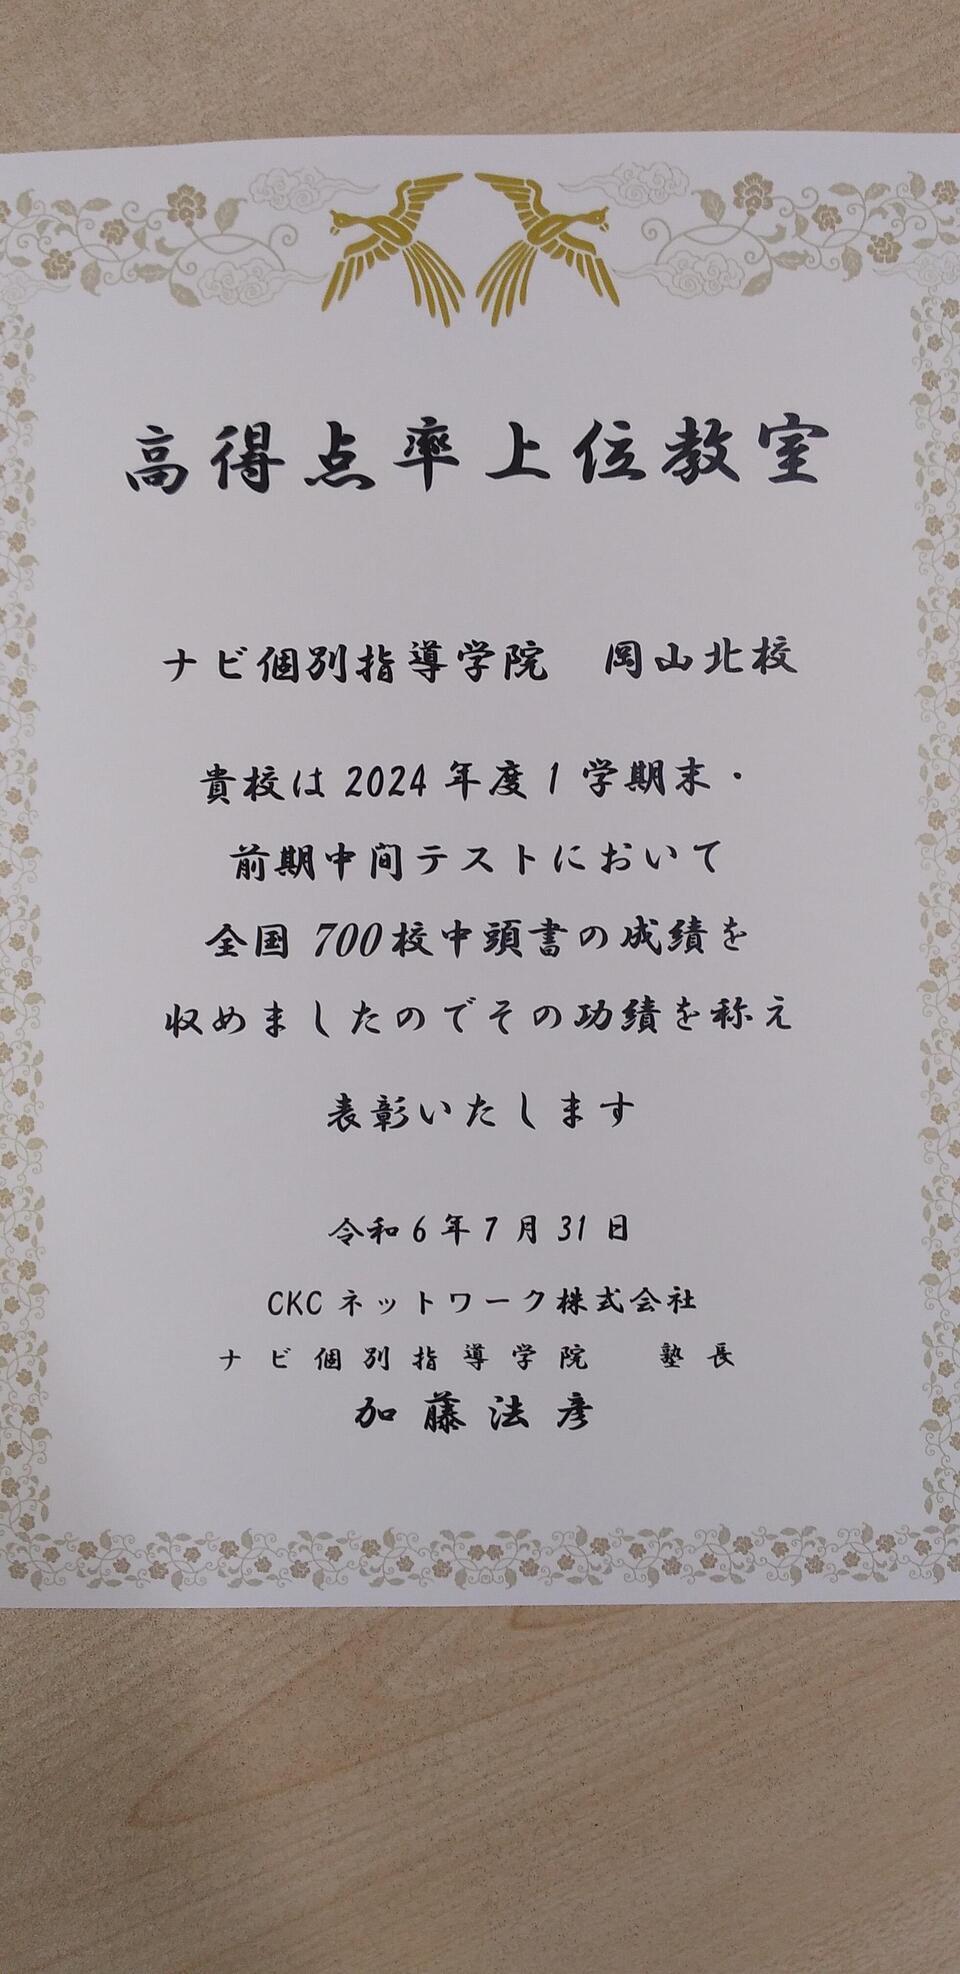 高得点率上位教室
ナビ個別指導学院　岡山北校
貴校は 2024 年度 1 学期末・
前期中間テストにおいて
全国 700校中頭書の成績を
収めましたのでその功績を称え
表彰いたします
令和 6 年 7 月 31 日
CKC ネットワーク株式会社
ナビ個別指導学院　塾長
加藤法彦